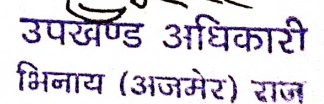 उपखण्ड अधिकारी
भिनाय (अजमेर) राज